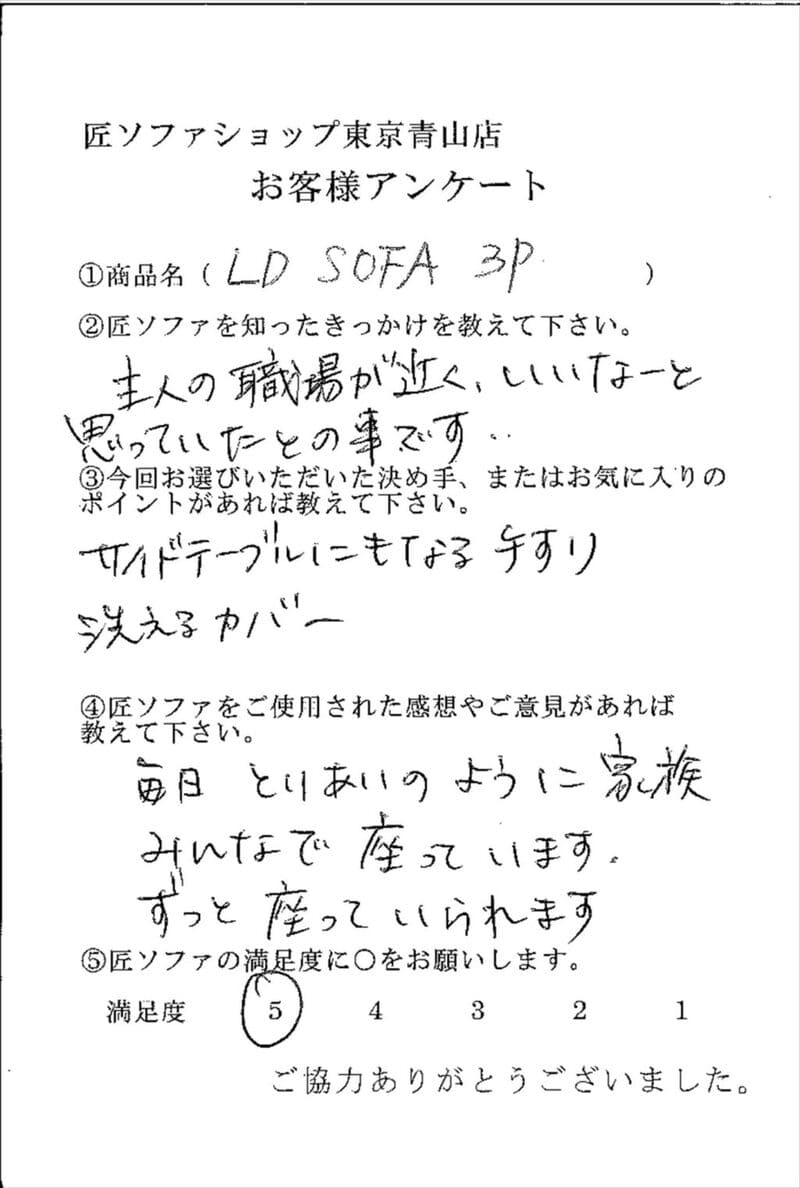 匠ソファショップ東京青山店
お客様アンケート
①商品名（ LD SOFA 3P ）
②匠ソファを知ったきっかけを教えて下さい。
主人の職場が近く、いいなーと
思っていたとの事です‥
③今回お選びいただいた決め手、またはお気に入りの
ポイントがあれば教えて下さい。
サイドテーブルにもなる手すり
洗えるカバー
④匠ソファをご使用された感想やご意見があれば
教えて下さい。
毎日とりあいのように家族
みんなで座っています.
ずっと座っていられます
⑤匠ソファの満足度に〇をお願いします。
満足度 5 4 3 2 1
ご協力ありがとうございました。